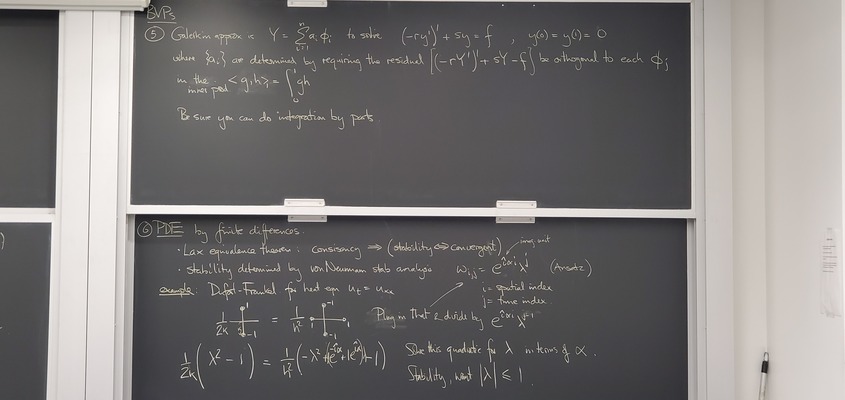 BVPs
⑤ Galerkin approx is Y = Σ_{i=1}^{n} a_i φ_i to solve (-ry')' + sy = f , y(0) = y(1) = 0
where {a_i} are determined by requiring the residual [(-rY')' + sY - f] be orthogonal to each φ_j
in the inner prod <g,h> = ∫_0^1 gh
Be sure you can do integration by parts
⑥ PDE by finite differences.
· Lax equivalence theorem: consistency ⇒ (stability ⇔ convergent)
imag. unit
· stability determined by von Neumann stab analysis w_{i,j} = e^{îαi} λ^j (Ansatz)
i = spatial index
j = time index
example: Dufort-Frankel for heat eqn u_t = u_xx
Plug in that & divide by e^{îαi} λ^{j-1}
1/2k 1 -1 = 1/h² -1 1 1 -1
1/2k (λ² - 1) = 1/h² (-λ² + λ(e^{-îα} + e^{îα}) - 1)
Solve this quadratic for λ in terms of α.
Stability, want |λ| ≤ 1.